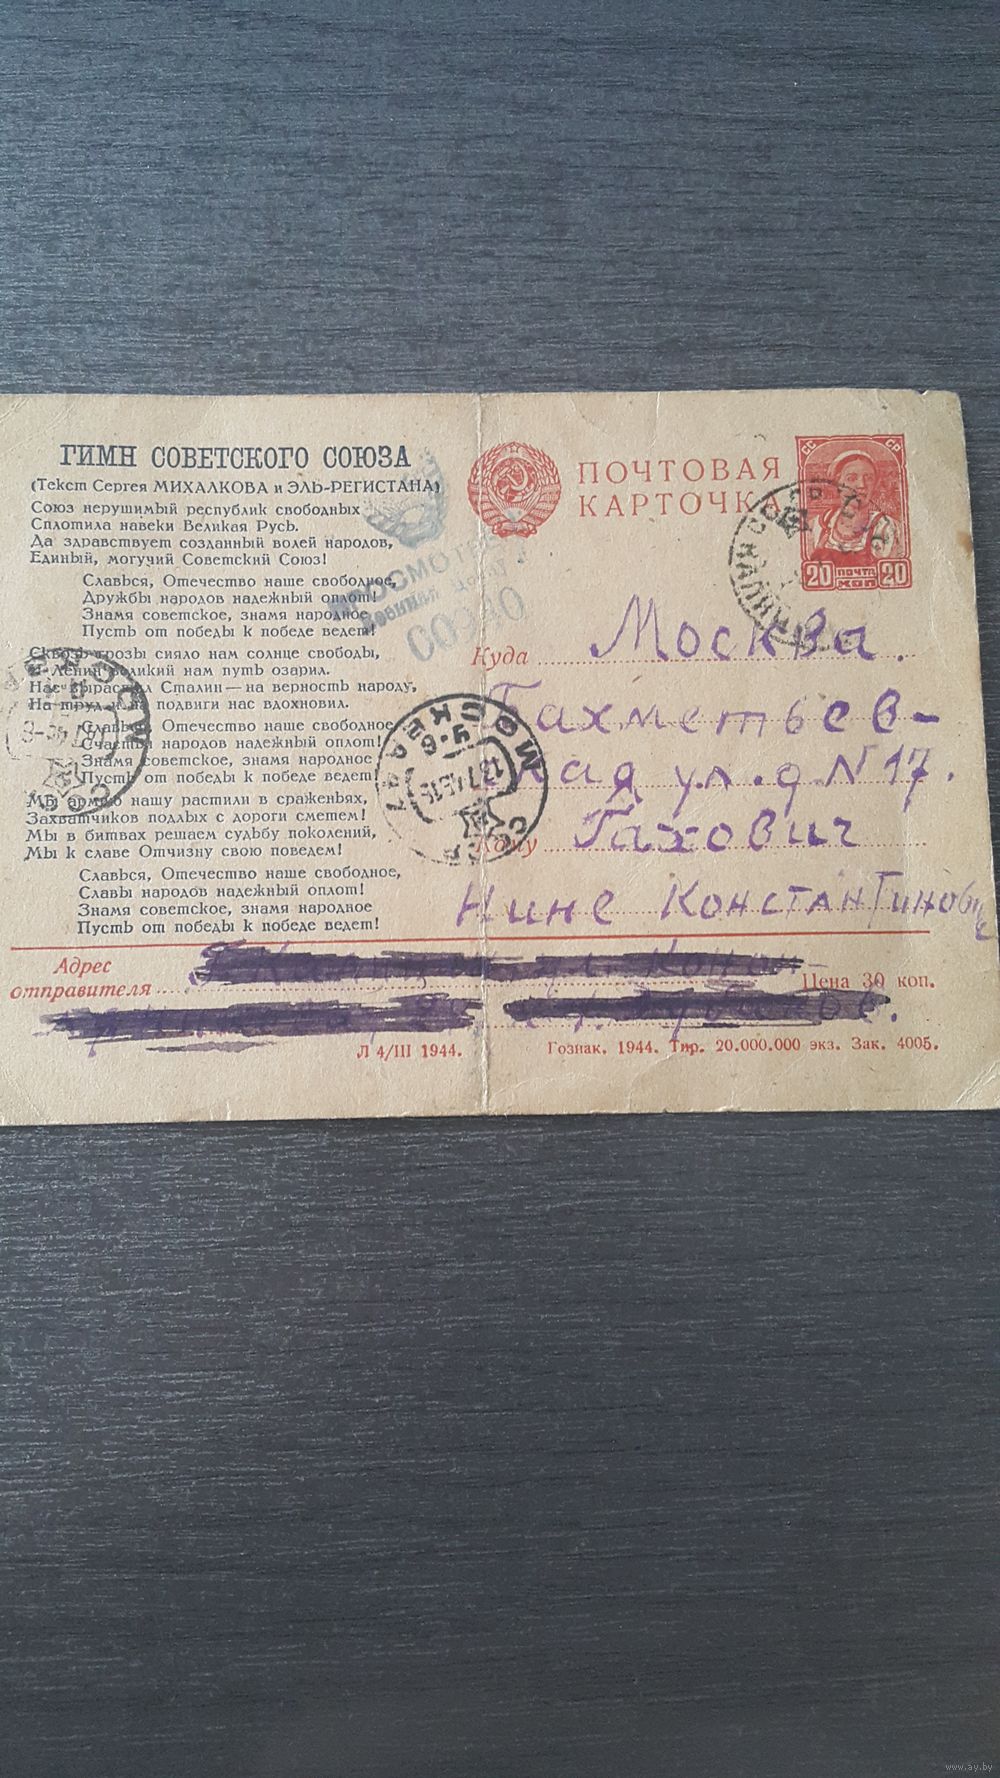 ГИМН СОВЕТСКОГО СОЮЗА
(Текст Сергея МИХАЛКОВА и ЭЛЬ-РЕГИСТАНА)
Союз нерушимый республик свободных
Сплотила навеки Великая Русь.
Да здравствует созданный волей народов,
Единый, могучий Советский Союз!
Славься, Отечество наше свободное,
Дружбы народов надежный оплот!
Знамя советское, знамя народное
Пусть от победы к победе ведет!
Сквозь грозы сияло нам солнце свободы,
И Ленин великий нам путь озарил.
Нас вырастил Сталин — на верность народу,
На труд и на подвиги нас вдохновил.
Славься, Отечество наше свободное,
Счастья народов надежный оплот!
Знамя советское, знамя народное
Пусть от победы к победе ведет!
Мы армию нашу растили в сраженьях,
Захватчиков подлых с дороги сметем!
Мы в битвах решаем судьбу поколений,
Мы к славе Отчизну свою поведем!
Славься, Отечество наше свободное,
Славы народов надежный оплот!
Знамя советское, знамя народное
Пусть от победы к победе ведет!
ПОЧТОВАЯ
КАРТОЧКА
СС СР
20 ПОЧТА КОП 20
ПРОСМОТРЕНО
Военной
Куда Москва.
Бахметьев-
кая ул. д N 17.
Кому Гахович
Нине Константиновне
МОСКВА
СССР
МОСКВА
СССР
Адрес
отправителя
ул.
Цена 30 коп.
Л 4/III 1944.
Гознак. 1944. Тир. 20.000.000 экз. Зак. 4005.
www.ay.by